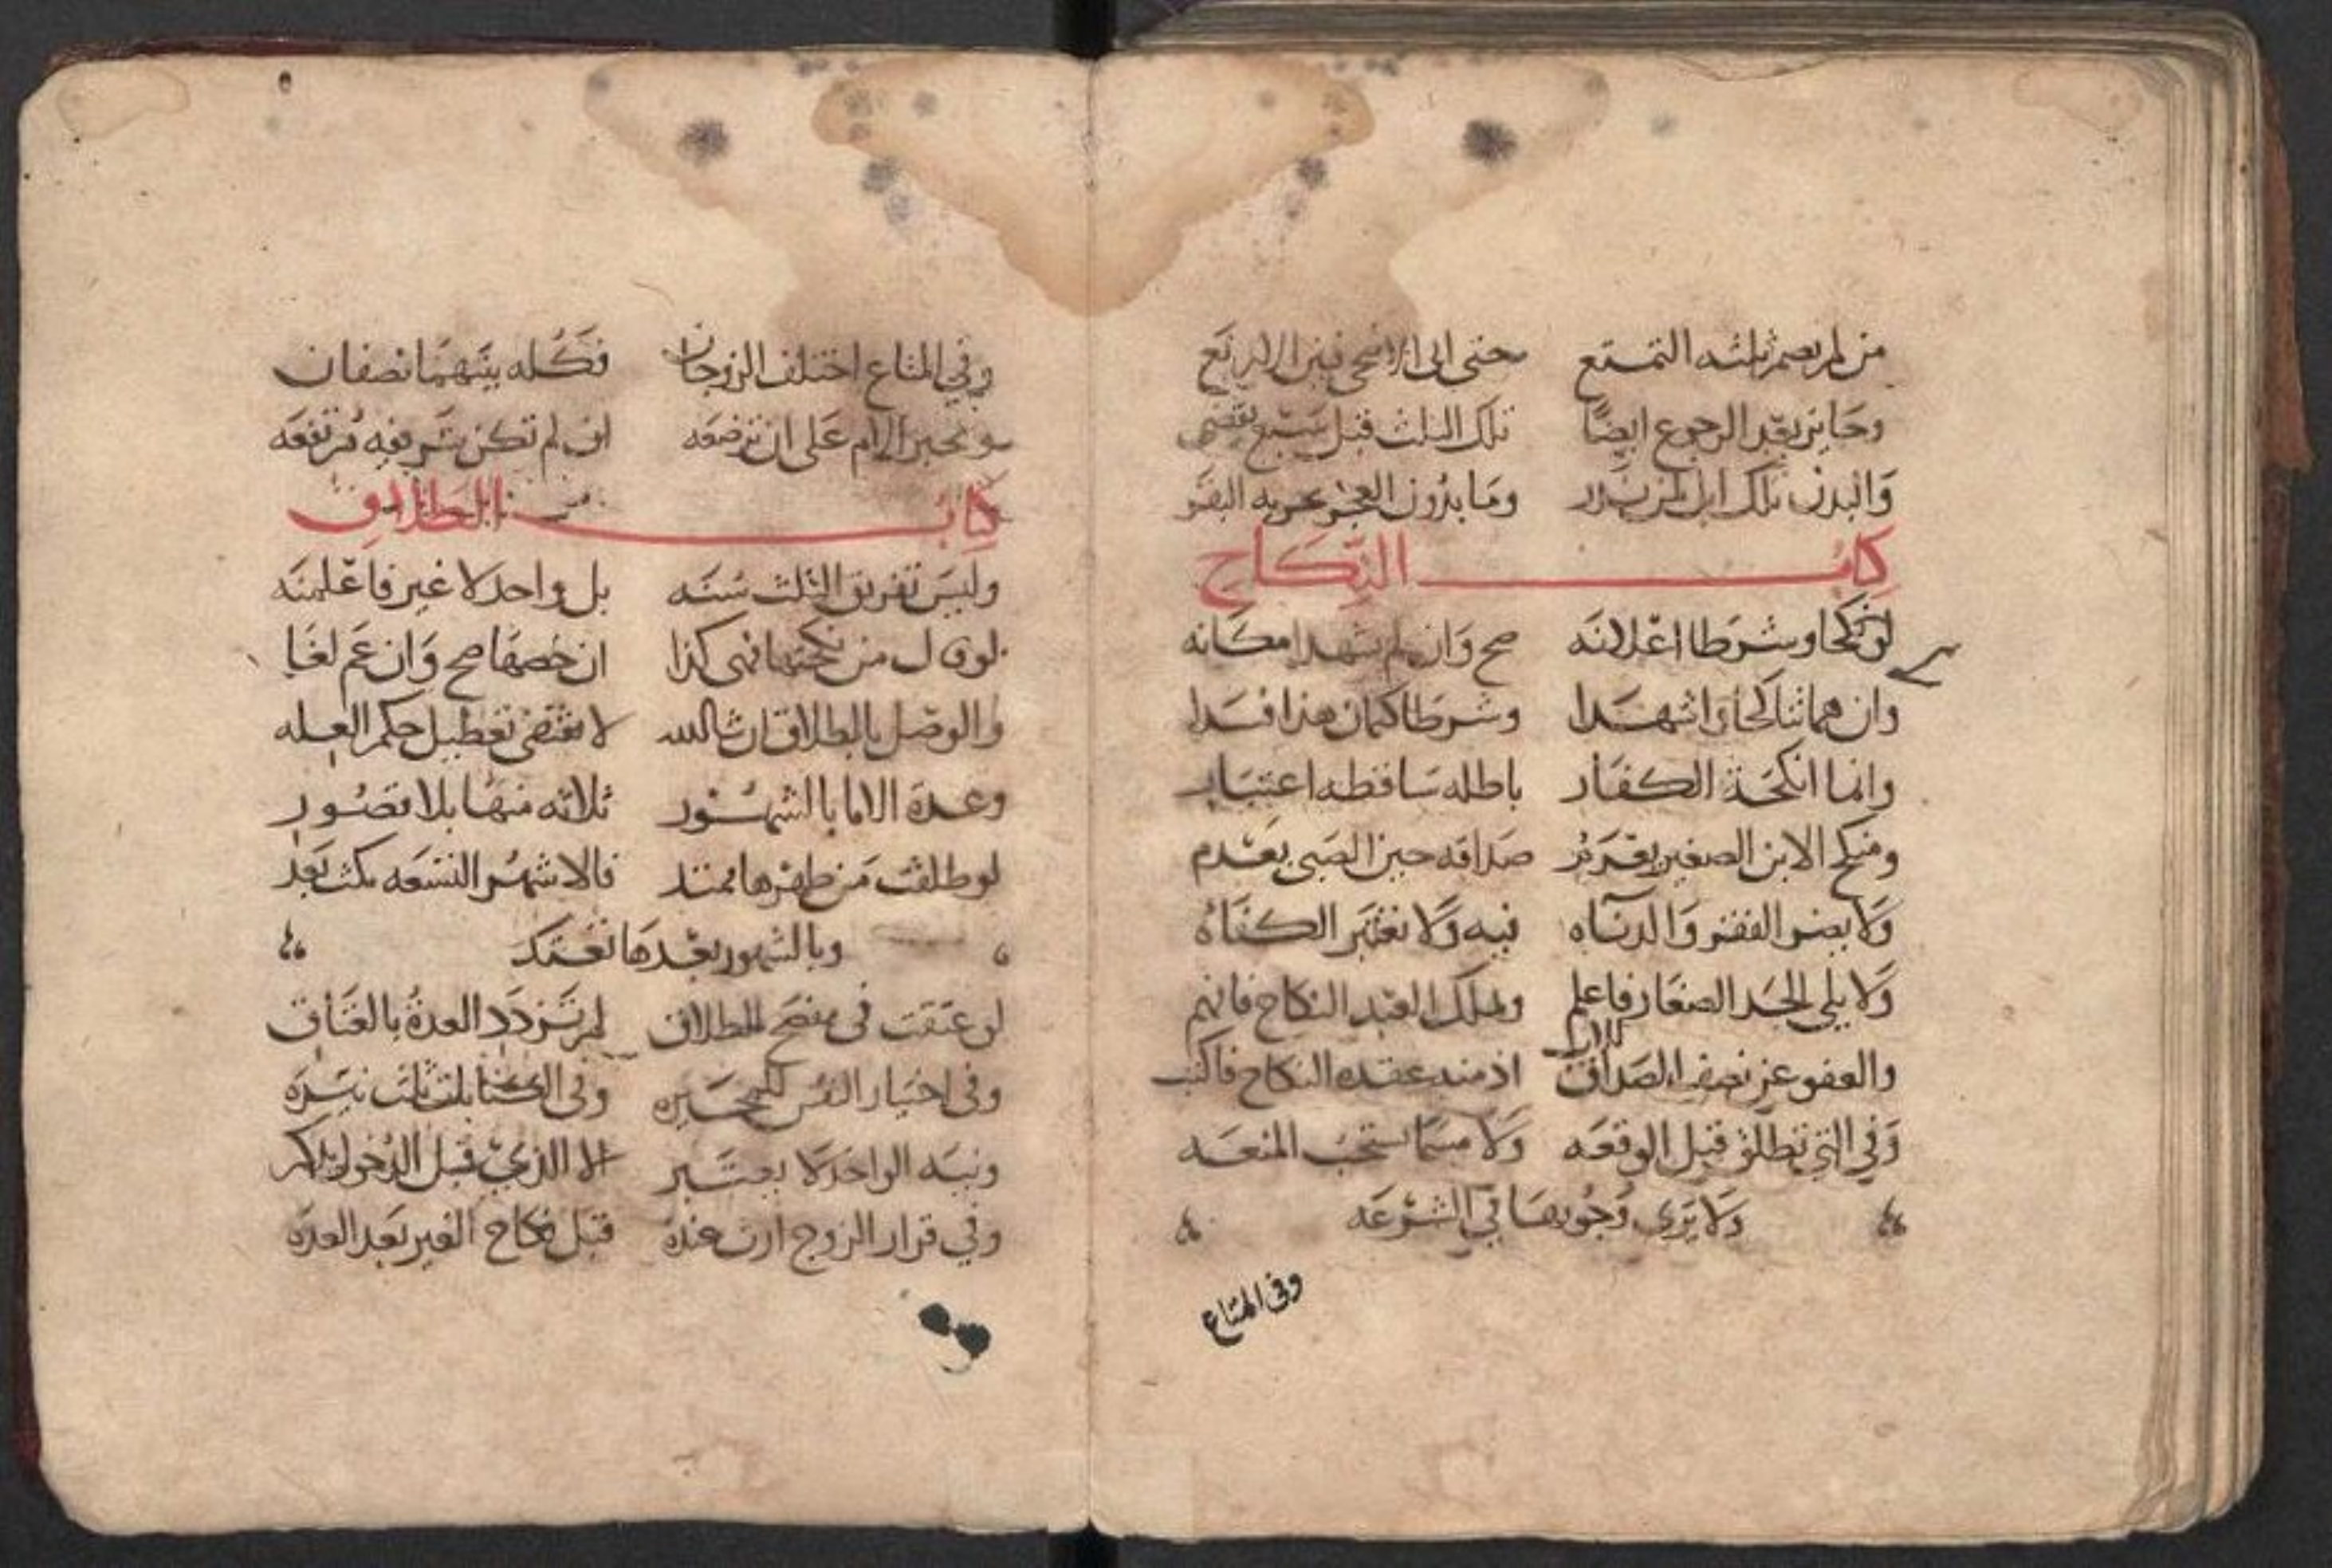 من لم يصم ثلثه التمتع حتى الى الاضحى فبن الاربع
وجايز بعد الرجوع ايضًا تلك الثلث قبل سبع تقضى
والبدن تلك ابل لمن نذر وما يرون العجز عن به البقر
كتاب النكاح
لو نكحا وشرطا اعلانه صح وان لم يشهدا مكانه
وان هما تناكحا واشهدا وشرطا كتمان هذا فسدا
وانما انكحة الكفار باطله ساقطه اعتبار
ومنكح الابن الصغير يغرم صداقه حين الصبي يعدم
ولا يضر الفقر والدناه فيه ولا نعتبر الكفاه
ولا يلي الجد الصغار فاعلم ولملك العبد النكاح فافهم
للاب
والعفو عن نصف الصداق اذ منه عقده النكاح فاكتب
وفي التي تطلق قبل الوقعه ولا مسما تستحب المتعه
ولا يرى وجوبها في الشرعه
وفي المتاع
وفي المتاع اختلف الزوجان فكله بينهما نصفان
وتجبر الام على ان ترضعه ان لم تكن شريفه مرتفعه
كتاب الطلاق
وليس تفريق الثلث سنه بل واحد لا غير فاعلمنه
لو قال من نكحتها فهي كذا ان خصها صح وان عم لغا
والوصل بالطلاق ان شا الله لا يقتضي تعطيل حكم العله
وعدة الاما بالشهور ثلاثه منها بلا قصور
لو طلقت من طهرها ممتد فالاشهر التسعه مكث بعد
وبالشهور بعدها تعتد
لو عتقت في منضح الطلاق لم تزدد العدة بالعتاق
وفي اختيار النفس للمخيره وفي الكنايات ثلث نيره
ونيه الواحد لا يعتبر الا الذي قبل الدخول يذكر
وفي قرار الزوج ارث عنده قبل نكاح الغير بعد العده